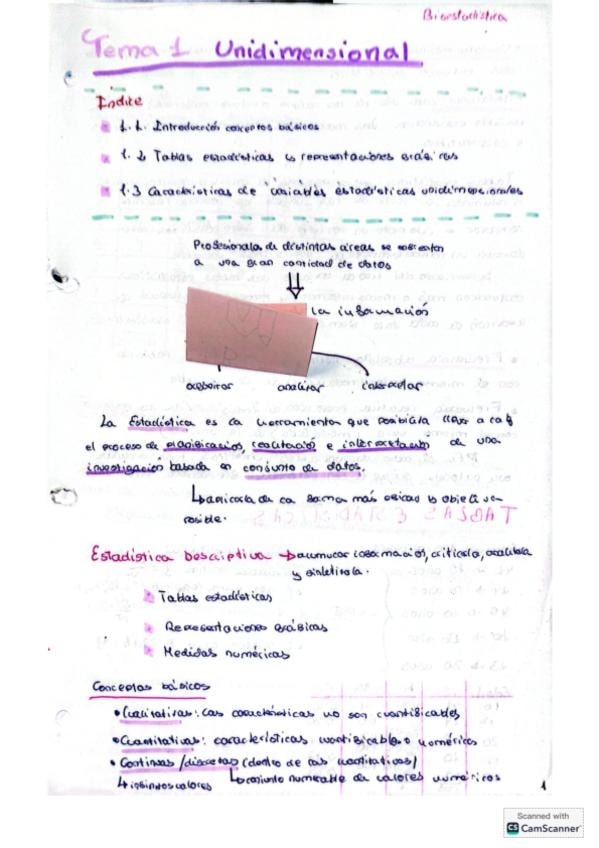 Bioestadística
Tema 1 Unidimensional
Índice
1.1. Introducción conceptos básicos
1.2 Tablas estadísticas y representaciones gráficas
1.3 Características de variables estadísticas unidimensionales
Profesionales de distintas áreas se enfrentan
a una gran cantidad de datos
la información
analizar interpretar
La Estadística es la herramienta que posibilita llevar a cabo
el proceso de planificación, e interpretación de una
investigación basada en conjunto de datos.
de la forma más objetiva
posible.
TABLAS ESTADÍSTICAS
Estadística Descriptiva → información, criticarla, analizarla
y sintetizarla.
Tablas estadísticas
Representaciones gráficas
Medidas numéricas
Conceptos básicos
• Cualitativas: las características no son cuantificables
• Cuantitativas: características cuantificables o numéricos
• Continuas/discretas (dentro de las cuantitativas)
↳ infinitos valores ↳ conjunto numerable de valores numéricos
1
Scanned with
CS CamScanner